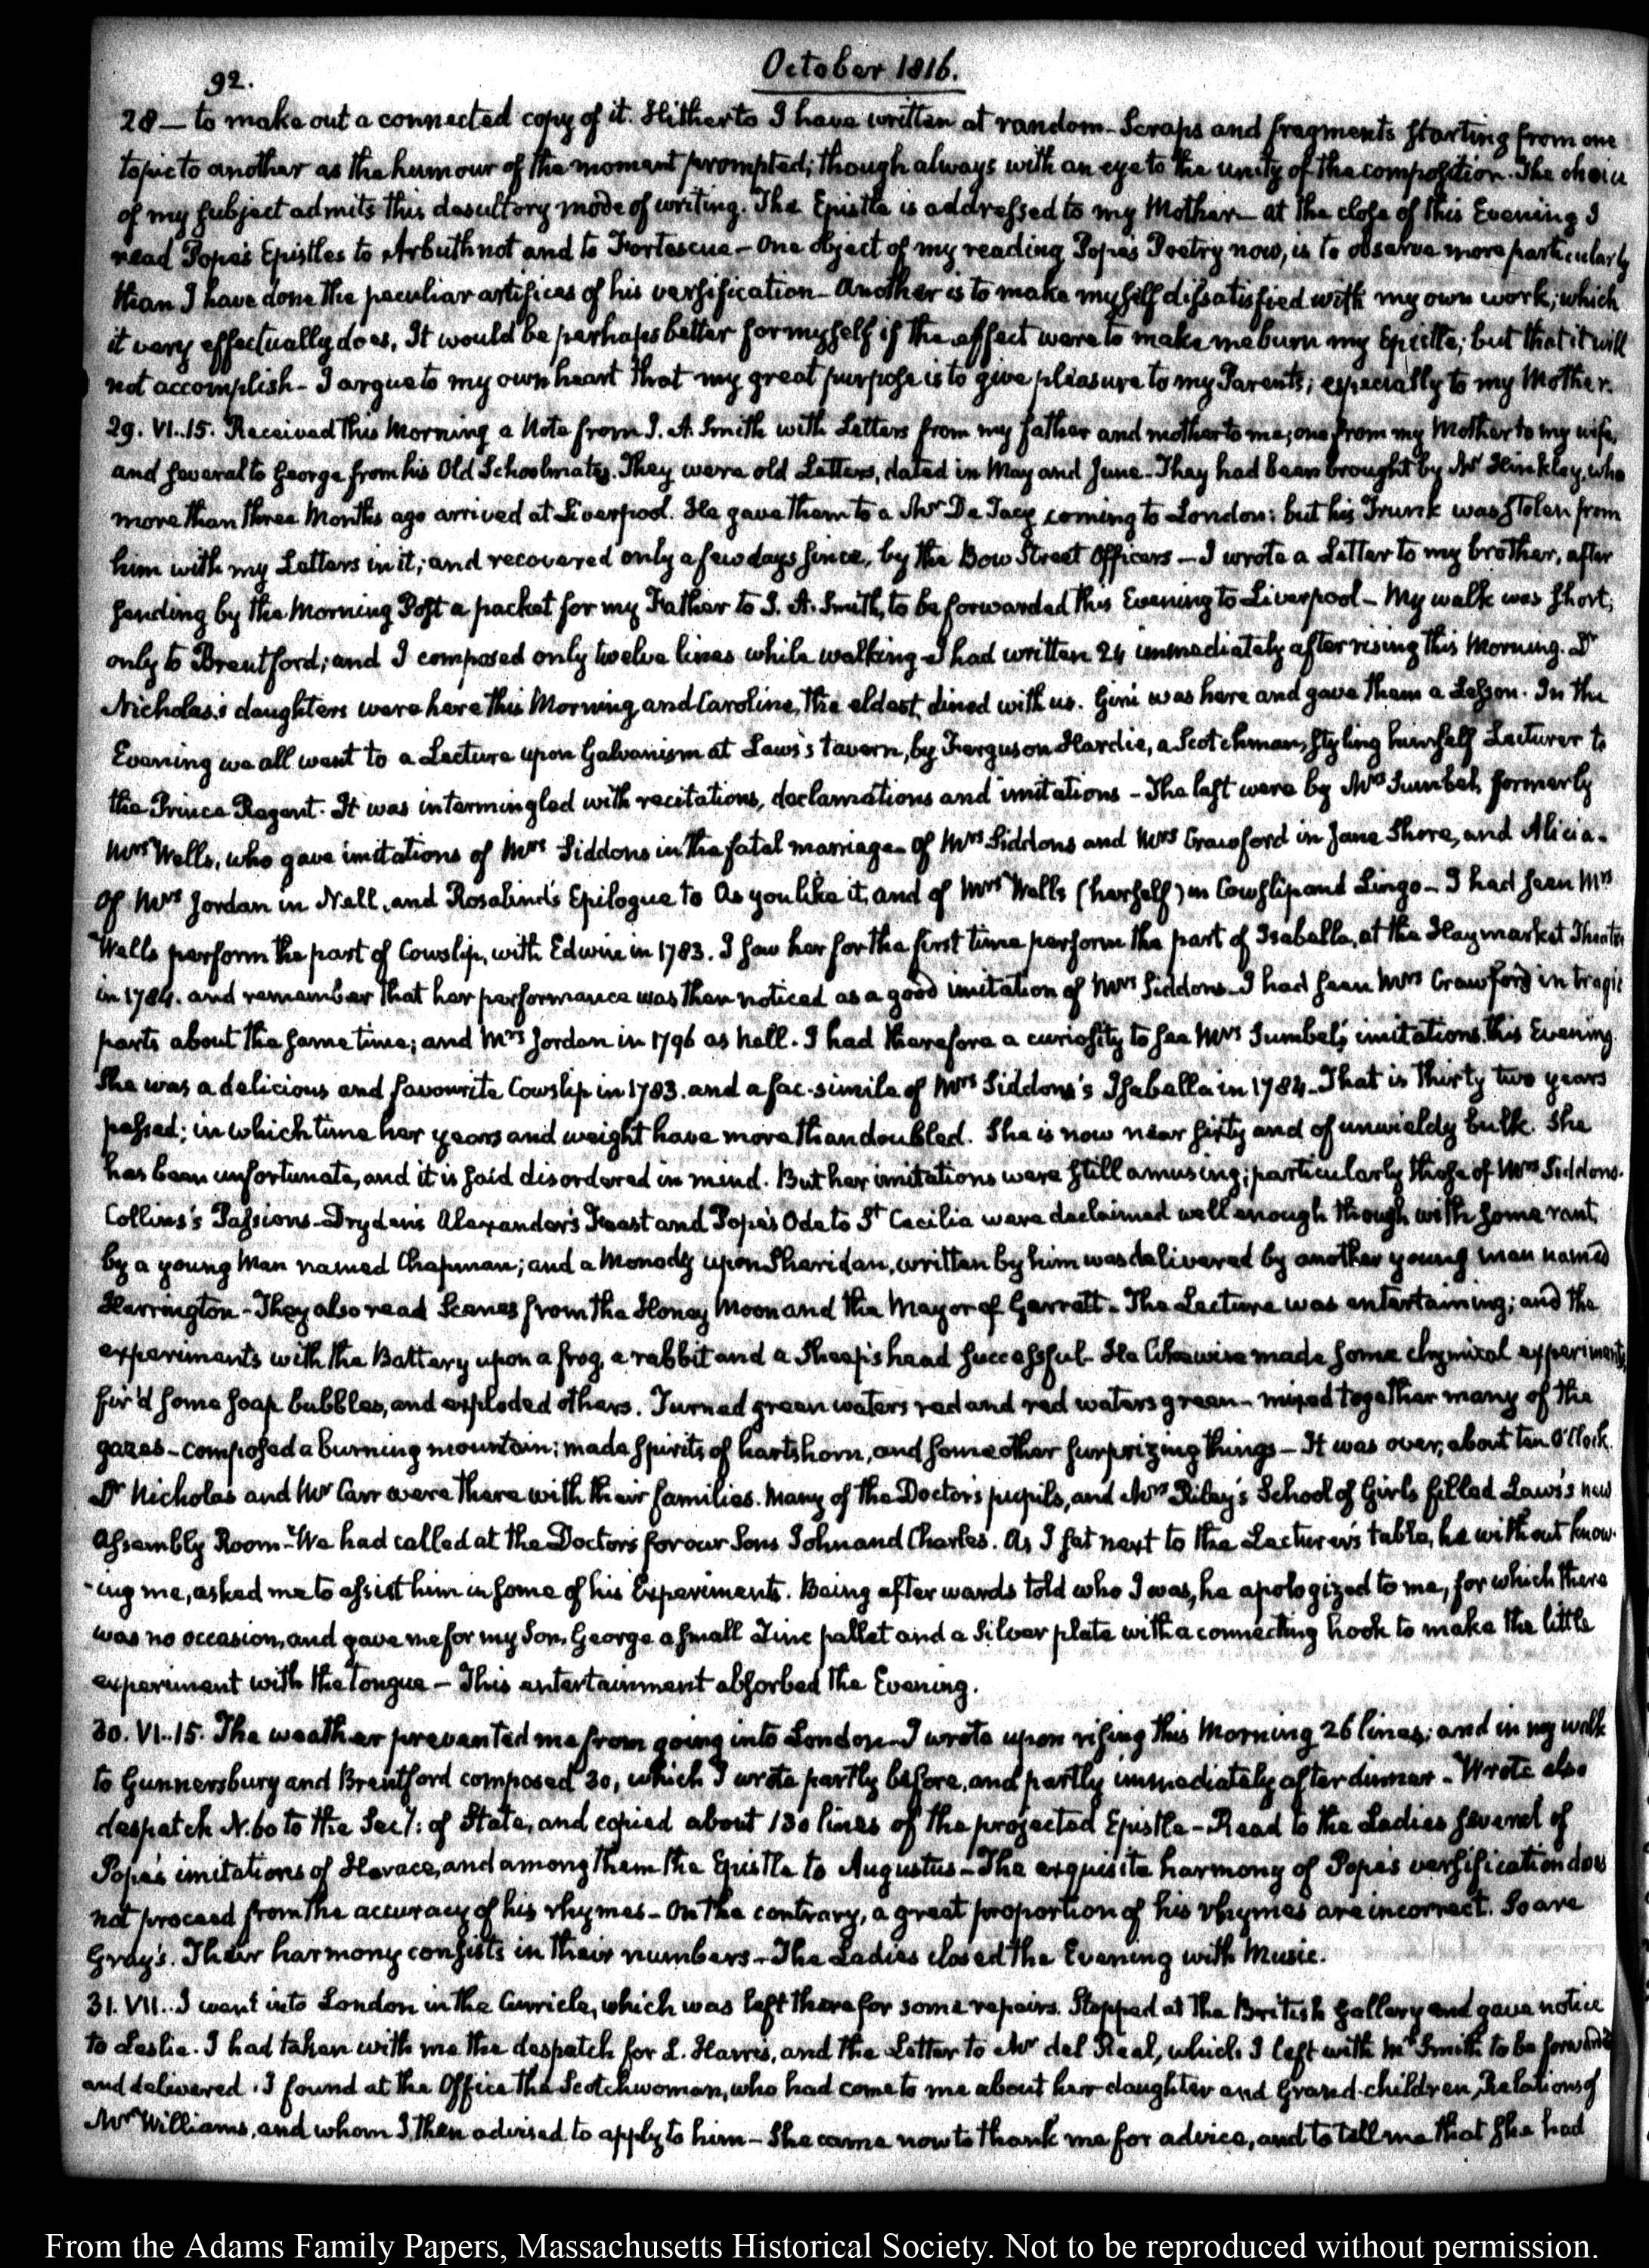 92.
October 1816.
28 — to make out a connected copy of it. Hitherto I have written at random - Scraps and fragments starting from one
topic to another as the humour of the moment prompted; though always with an eye to the unity of the composition. The choice
of my subject admits this desultory mode of writing. The Epistle is addressed to my Mother — at the close of this Evening I
read Pope's Epistles to Arbuthnot and to Fortescue — One object of my reading Pope's Poetry now, is to observe more particularly
than I have done the peculiar artifices of his versification — Another is to make myself dissatisfied with my own work; which
it very effectually does. It would be perhaps better for myself if the effect were to make me burn my Epistle; but that it will
not accomplish - I argue to my own heart that my great purpose is to give pleasure to my Parents; especially to my Mother.
29. VI..15. Received this Morning a Note from J. A. Smith with Letters from my father and mother to me; one from my Mother to my wife,
and several to George from his Old Schoolmates. They were old Letters, dated in May and June. They had been brought by Mr Hinkley, who
more than three Months ago arrived at Liverpool. He gave them to a Mr De Tacy coming to London; but his Trunk was stolen from
him with my Letters in it; and recovered only a few days since, by the Bow Street Officers — I wrote a Letter to my brother, after
sending by the Morning Post a packet for my Father to J. A. Smith, to be forwarded this Evening to Liverpool - My walk was short;
only to Brentford; and I composed only twelve lines while walking - I had written 24 immediately after rising this Morning. Dr
Nicholas's daughters were here this Morning, and Caroline, the eldest, dined with us. Gini was here and gave them a Lesson. In the
Evening we all went to a Lecture upon Galvanism at Laws's tavern, by Ferguson Hardie, a Scotchman, styling himself Lecturer to
the Prince Regent. It was intermingled with recitations, declamations and imitations - The last were by Mrs Sumbel, formerly
Mrs Wells, who gave imitations of Mrs Siddons in the fatal marriage - of Mrs Siddons and Mrs Crawford in Jane Shore, and Alicia -
of Mrs Jordan in Nell, and Rosalind's Epilogue to As you like it, and of Mrs Wells (herself) in Cowslip and Lingo - I had seen Mrs
Wells perform the part of Cowslip, with Edwin in 1783. I saw her for the first time perform the part of Isabella, at the Haymarket Theatre
in 1784. and remember that her performance was then noticed as a good imitation of Mrs Siddons - I had seen Mrs Crawford in tragic
parts about the same time; and Mrs Jordan in 1796 as Nell. I had therefore a curiosity to see Mrs Sumbel's imitations this Evening.
She was a delicious and favourite Cowslip in 1783. and a fac-simile of Mrs Siddons's Isabella in 1784. That is thirty two years
passed; in which time her years and weight have more than doubled. She is now near sixty and of unwieldy bulk. She
has been unfortunate, and it is said disordered in mind. But her imitations were still amusing; particularly those of Mrs Siddons.
Collins's Passions - Dryden's Alexander's Feast and Pope's Ode to St Cecilia were declaimed well enough though with some rant,
by a young Man named Chapman; and a Monody upon Sheridan, written by him was delivered by another young man named
Harrington - They also read Scenes from the Honey Moon and the Mayor of Garratt - The Lecture was entertaining; and the
experiments with the Battery upon a frog, a rabbit and a Sheep's head successful - He likewise made some chymical experiments,
fir'd some soap bubbles, and exploded others. Turned green waters red and red waters green - mixed together many of the
gazes - composed a burning mountain; made spirits of hartshorn, and some other surprizing things — It was over, about ten O'Clock.
Dr Nicholas and Mr Carr were there with their families. Many of the Doctor's pupils, and Mrs Riley's School of Girls filled Laws's new
Assembly Room - We had called at the Doctor's for our Sons John and Charles. As I sat next to the Lecturer's table, he without know-
-ing me, asked me to assist him in some of his Experiments. Being afterwards told who I was, he apologized to me, for which there
was no occasion, and gave me for my Son George a small Zinc pallet and a Silver plate with a connecting hook to make the little
experiment with the tongue — This entertainment absorbed the Evening.
30. VI..15. The weather prevented me from going into London - I wrote upon rising this Morning 26 lines; and in my walk
to Gunnersbury and Brentford composed 30, which I wrote partly before, and partly immediately after dinner - Wrote also
despatch N. 60 to the Secy: of State, and copied about 130 lines of the projected Epistle - Read to the Ladies several of
Pope's imitations of Horace, and among them the Epistle to Augustus - The exquisite harmony of Pope's versification does
not proceed from the accuracy of his rhymes - On the contrary, a great proportion of his rhymes are incorrect. So are
Gray's. Their harmony consists in their numbers - The Ladies closed the Evening with Music.
31. VII.. I went into London in the Curricle, which was left there for some repairs. Stopped at the British Gallery and gave notice
to Leslie. I had taken with me the despatch for L. Harris, and the Letter to Mr del Real, which I left with Mr Smith to be forwarded
and delivered. I found at the Office the Scotchwoman, who had come to me about her daughter and Grand-children, Relations of
Mr Williams, and whom I then advised to apply to him - She came now to thank me for advice, and to tell me that she had
From the Adams Family Papers, Massachusetts Historical Society. Not to be reproduced without permission.